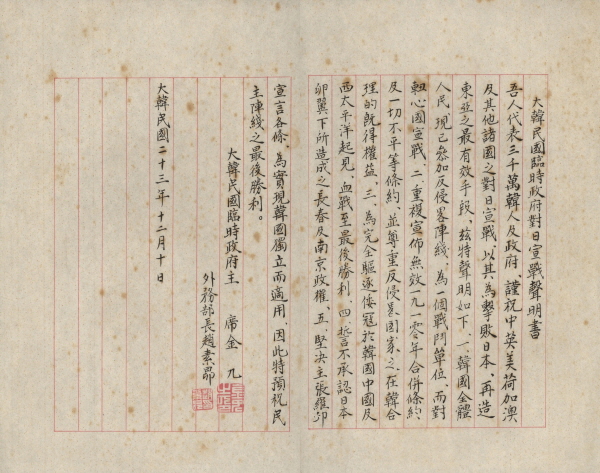 大韓民國臨時政府對日宣戰聲明書
吾人代表三千萬韓人及政府、謹祝中英美荷加澳
及其他諸國之對日宣戰、以其為擊敗日本、再造
東亞之最有效手段、茲特聲明如下、一、韓國全體
人民現已參加反侵畧陣綫、為一個戰鬥單位、而對
軸心國宣戰、二、重複宣佈無效一九一〇年合併條約、
及一切不平等條約、並尊重反侵畧國家之、在韓合
理的既得權益、三、為完全驅逐倭冦於韓國中國及
西太平洋起見、血戰至最後勝利、四、誓不承認日本
卵翼下所造成之長春及南京政權、五、堅決主張羅
宣言各條、為實現韓國獨立而適用、因此特預祝民
主陣綫之最後勝利。
大韓民國臨時政府主 席 金 九
外務部長趙素昂
大韓民國二十三年十二月十日